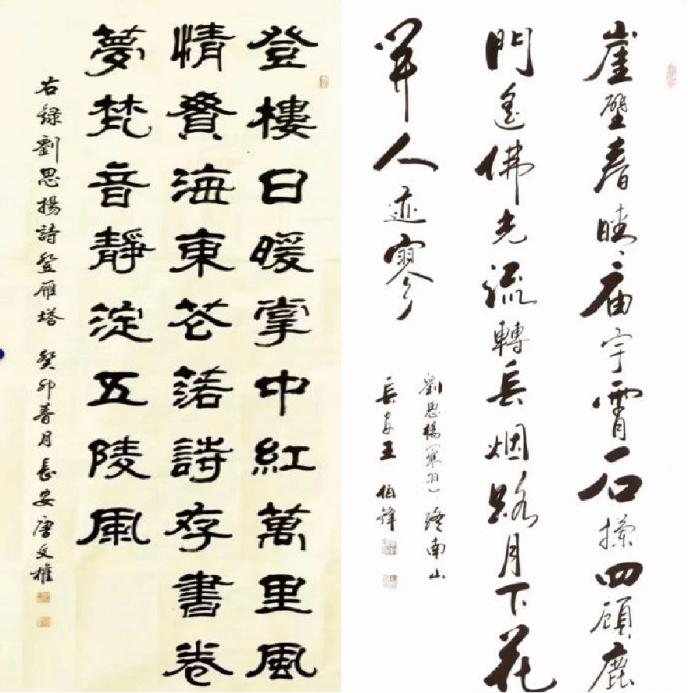 登樓日暖掌中紅萬里風
情賫海東花落詩存書卷
夢梵音靜淀五陵風
右録劉思揚詩登雁塔 癸卯春月長安唐文權
崖壁春晴庙宇霄石四顧鹿
門遙佛光流轉長烟路月下花
開人迹寥
劉思楊(寒羽)終南山
長安王伯鋒